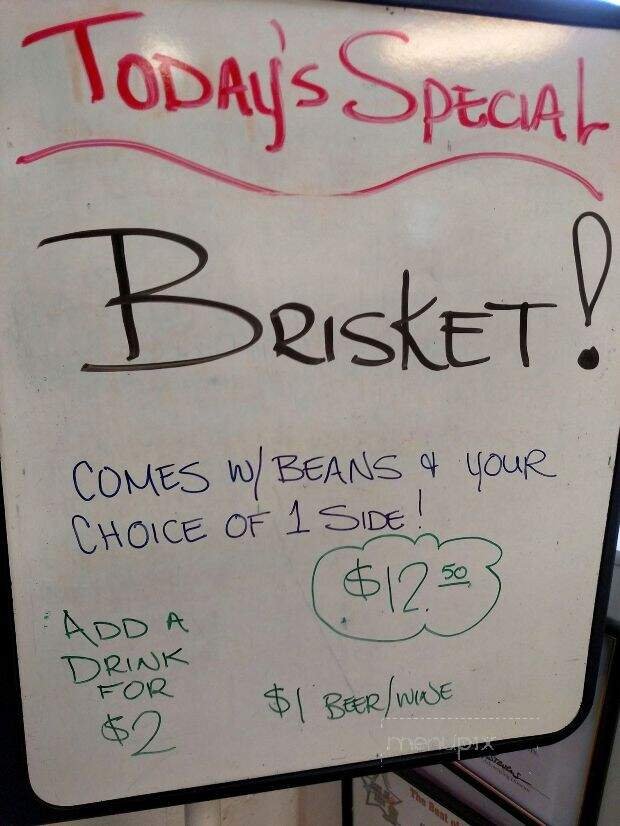 TODAY'S SPECIAL
BRISKET!
COMES W/ BEANS & YOUR
CHOICE OF 1 SIDE!
$12.50
ADD A
DRINK
FOR
$2
$1 BEER/WINE
menupix
The Best of